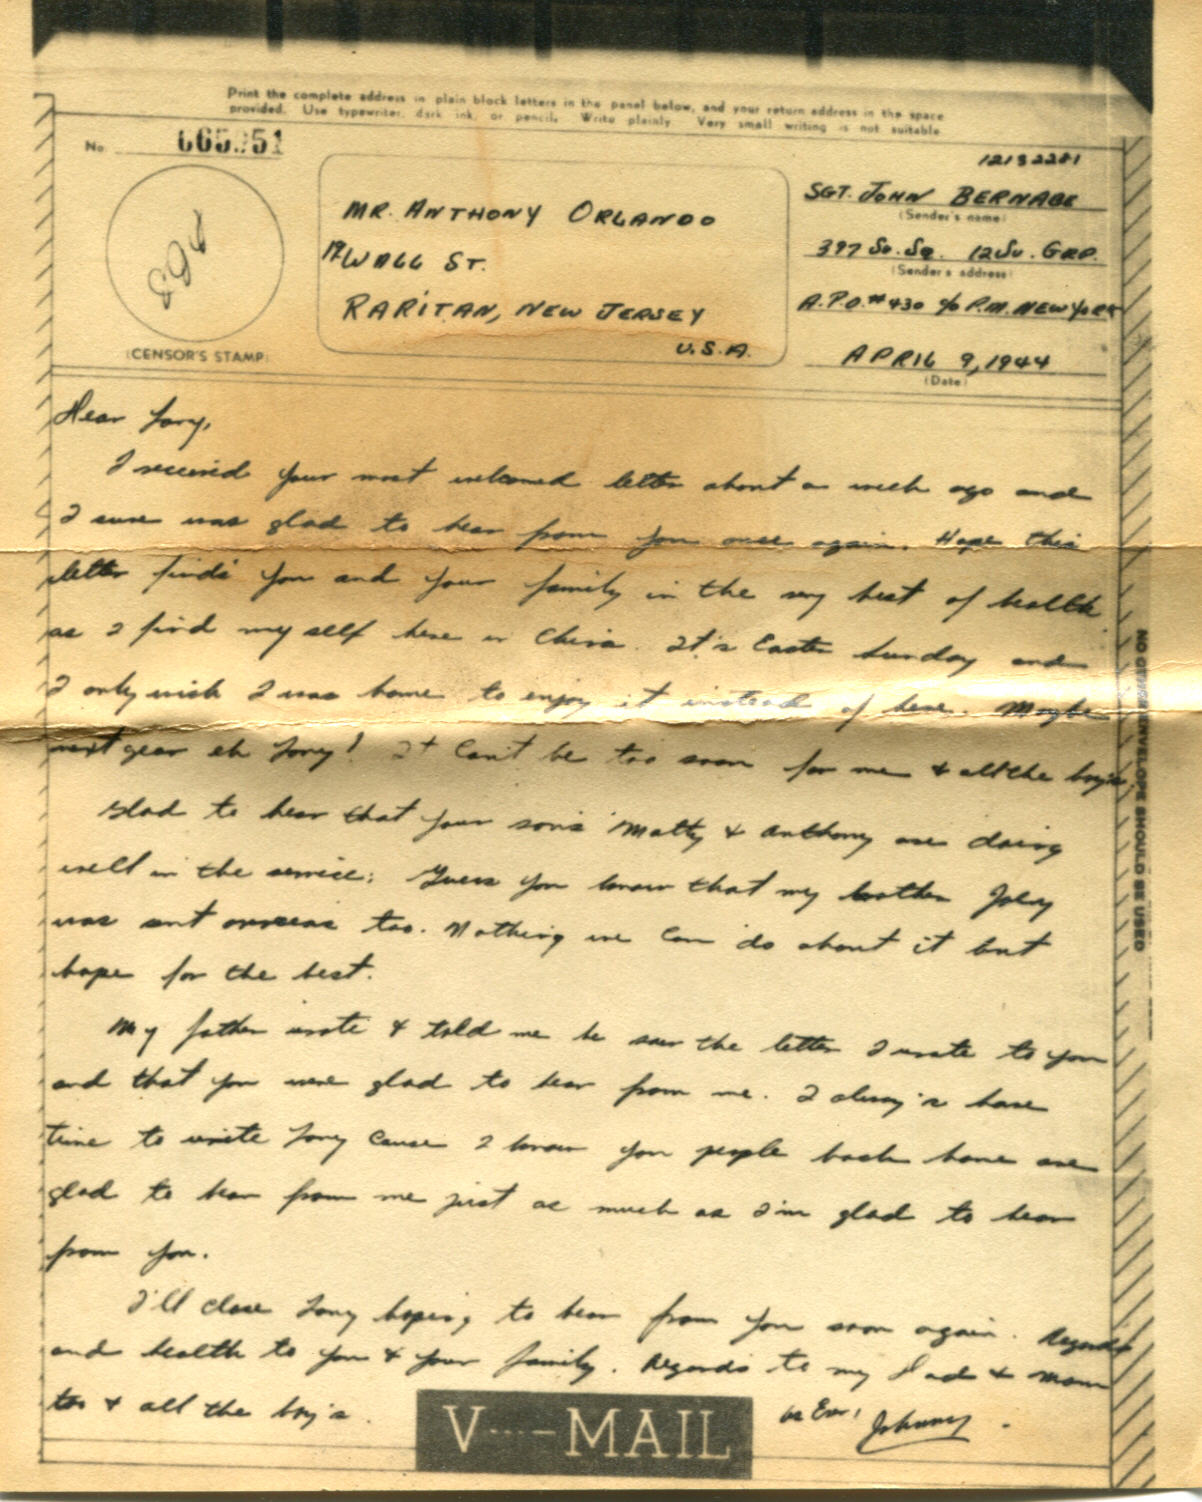 Print the complete address in plain block letters in the panel below, and your return address in the space
provided. Use typewriter, dark ink, or pencil. Write plainly. Very small writing is not suitable
No.
(CENSOR'S STAMP)
MR. ANTHONY ORLANDO
19 WALL ST.
RARITAN, NEW JERSEY
U.S.A.
12132281
SGT. JOHN BERNABE
(Sender's name)
397 Sv. Sq. 12 Sv. GRP.
(Sender's address)
A.P.O. #430 c/o P.M. NEW YORK
APRIL 9, 1944
(Date)
Dear Tony,
I received your most welcomed letter about a week ago and
I sure was glad to hear from you once again. Hope this
letter finds you and your family in the very best of health
as I find myself here in China. It's Easter Sunday and
I only wish I was home to enjoy it instead of here. Maybe
next year eh Tony! It can't be too soon for me & all the boys.
Glad to hear that your sons Matty & Anthony are doing
well in the service. Guess you know that my brother Joey
was sent overseas too. Nothing we can do about it but
hope for the best.
My father wrote & told me he saw the letter I wrote to you
and that you were glad to hear from me. I alway's have
time to write Tony cause I know you people back home are
glad to hear from me just as much as I'm glad to hear
from you.
I'll close Tony hoping to hear from you soon again. Regards
and health to you & your family. Regards to my Dad & Mom
too & all the boy's.
As Ever,
Johnny
V···—MAIL
NO OTHER ENVELOPE SHOULD BE USED